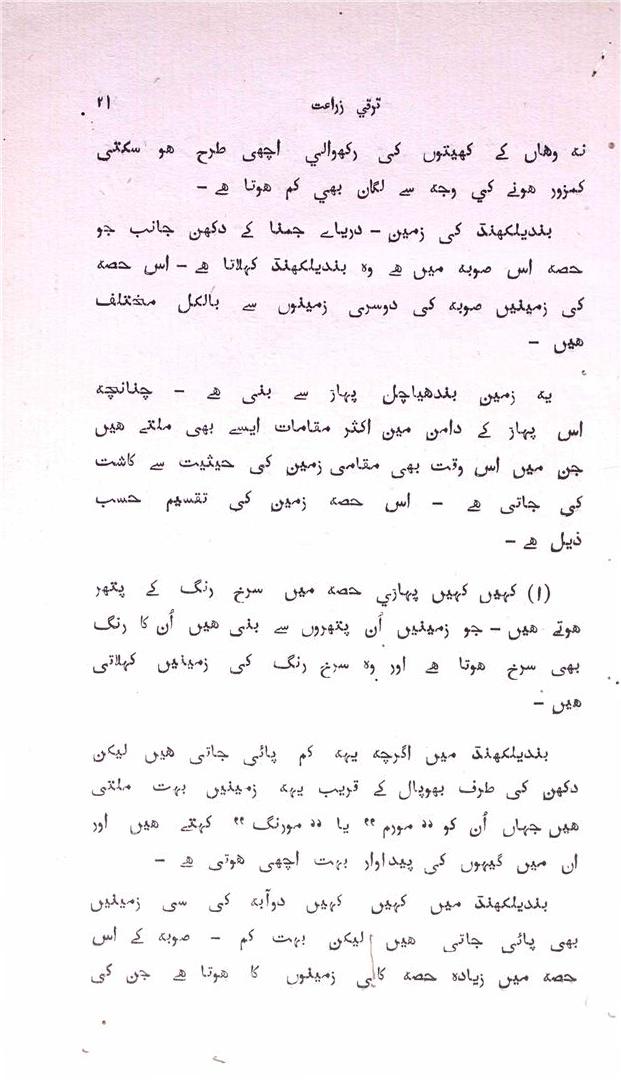 ترقي زراعت ۲۱
نہ وهاں کے کهیتوں کی رکهوالي اچهی طرح هو سکتی
کمزور هونے کي وجہ سے لگان بهي کم هوتا هے -
بندیلکهنڈ کی زمین - دریاے جمنا کے دکهن جانب جو
حصہ اس صوبہ میں هے وہ بندیلکهنڈ کہلاتا هے - اس حصہ
کی زمینیں صوبہ کی دوسری زمینوں سے بالکل مختلف
هیں -
یہ زمین بندهیاچل پہاڑ سے بنی هے - چنانچہ
اس پہاڑ کے دامن مین اکثر مقامات ایسے بهی ملتے هیں
جن میں اس وقت بهی مقامی زمین کی حیثیت سے کاشت
کی جاتی هے - اس حصہ زمین کی تقسیم حسب
ذیل هے -
(۱) کہیں کہیں پہاڑي حصہ میں سرخ رنگ کے پتهر
هوتے هیں - جو زمینیں اُن پتهروں سے بنی هیں اُن کا رنگ
بهی سرخ هوتا هے اور وہ سرخ رنگ کی زمینیں کہلاتی
هیں -
بندیلکهنڈ میں اگرچہ یہہ کم پائی جاتی هیں لیکن
دکهن کی طرف بهوپال کے قریب یہہ زمینیں بہت ملتی
هیں جہاں اُن کو ”مورم“ یا ”مورنگ“ کہتے هیں اور
ان میں گیہوں کی پیداوار بہت اچهی هوتی هے -
بندیلکهنڈ میں کہیں کہیں دوآبہ کی سی زمینیں
بهی پائی جاتی هیں لیکن بہت کم - صوبہ کے اس
حصہ میں زیادہ حصہ زمینوں کا هوتا هے جن کی